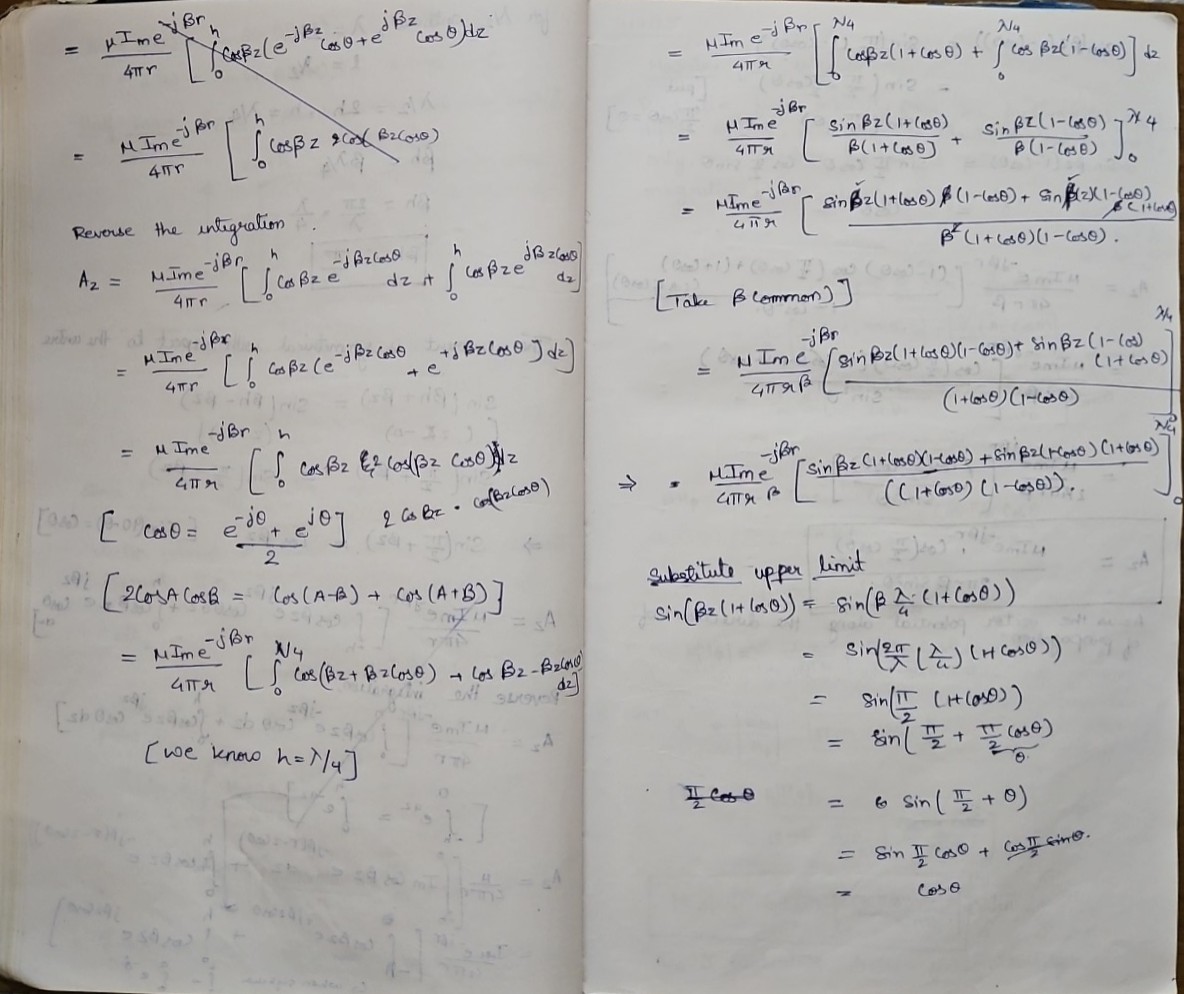 = μIme^-jβr / 4πr [ ∫₀^h cosβz(e^-jβz cosθ + e^jβz cosθ)dz
= μIme^-jβr / 4πr [ ∫₀^h cosβz 2cos( βzcosθ)
Reverse the integration.
Az = μIme^-jβr / 4πr [ ∫₀^h cosβz e^-jβzcosθ dz + ∫₀^h cosβz e^jβzcosθ dz]
= μIme^-jβr / 4πr [ ∫₀^h cosβz (e^-jβzcosθ + e^+jβzcosθ ] dz]
= μIme^-jβr / 4πr [ ∫₀^h cosβz 2 cos(βz cosθ) dz
[ cosθ = e^-jθ + e^jθ / 2 ] 2 cosβz · cos(βzcosθ)
[2cosA cosB = cos(A-B) + cos(A+B)]
= μIme^-jβr / 4πr [ ∫₀^λ/4 cos(βz + βzcosθ) + cos βz - βzcosθ dz]
[we know h=λ/4]
= μIm e^-jβr / 4πr [ ∫₀^λ/4 cosβz(1+cosθ) + ∫₀^λ/4 cos βz(1-cosθ) ] dz
= μIme^-jβr / 4πr [ sinβz(1+cosθ) / β(1+cosθ) + sinβz(1-cosθ) / β(1-cosθ) ]₀^λ/4
= μIme^-jβr / 4πr [ sinβz(1+cosθ) β(1-cosθ) + sinβ(z)(1-cosθ) β(1+cosθ) / β²(1+cosθ)(1-cosθ).
[Take β common)]
= μIme^-jβr / 4πrβ [ sinβz(1+cosθ)(1-cosθ) + sinβz(1-cos) (1+cosθ) / (1+cosθ)(1-cosθ) ]₀^λ/4
⇒ = μIme^-jβr / 4πrβ [ sinβz(1+cosθ)(1-cosθ) + sinβz(1-cosθ)(1+cosθ) / ((1+cosθ)(1-cosθ)). ]₀^λ/4
Substitute upper limit
sin(βz(1+cosθ)) = sin(β λ/4 · (1+cosθ))
= sin(2π/λ (λ/4) (1+cosθ))
= sin(π/2 (1+cosθ))
= sin( π/2 + π/2 cosθ)
θ
π/2 cosθ = 6 sin( π/2 + θ)
= sin π/2 cosθ + cos π/2 sinθ.
= cosθ